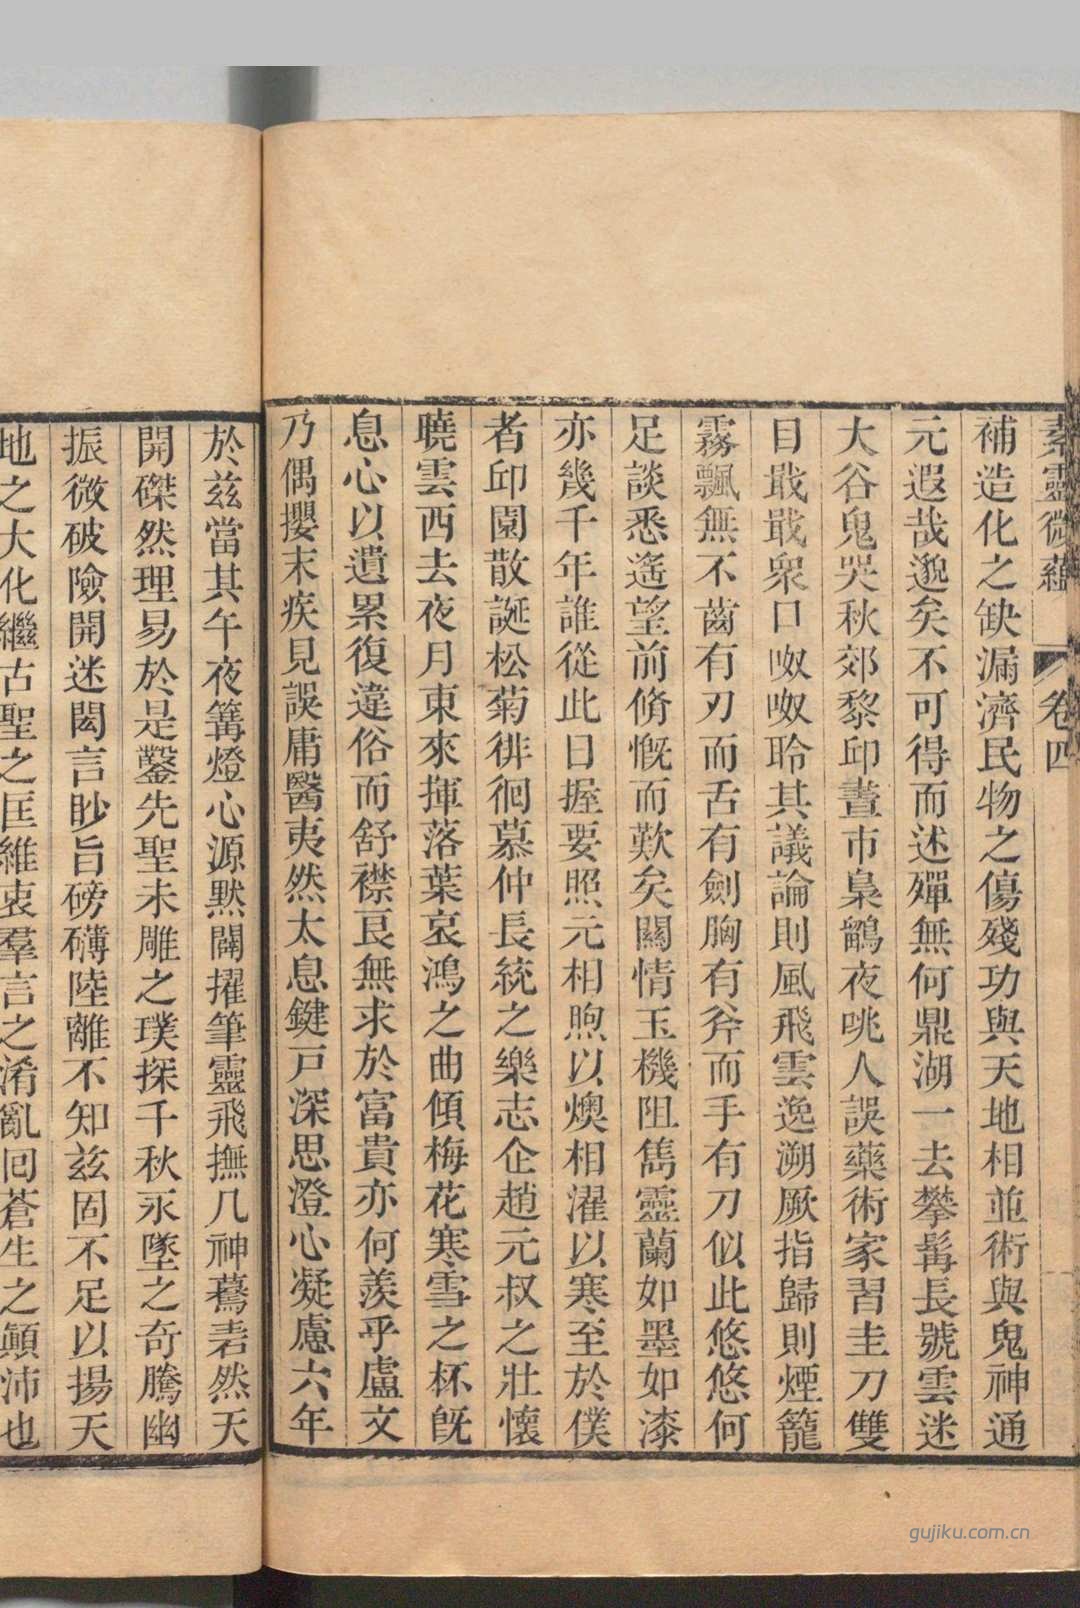 素靈微蘊 卷四
補造化之缺漏濟民物之傷殘功與天地相並術與鬼神通
元遐哉邈矣不可得而述殫無何鼎湖一去攀髯長號雲迷
大谷鬼哭秋郊黎邱晝市梟鶹夜咷人誤藥術家習圭刀雙
目戢戢衆口呶呶聆其議論則風飛雲逸溯厥指歸則煙籠
霧飄無不齒有刃而舌有劍胸有斧而手有刀似此悠悠何
足談悉遙望前脩慨而歎矣關情玉機阻雋靈蘭如墨如漆
亦幾千年誰從此日握要照元相煦以燠相濯以寒至於僕
者邱園散誕松菊徘徊慕仲長統之樂志企趙元叔之壯懷
曉雲西去夜月東來揮落葉哀鴻之曲傾梅花寒雪之杯旣
息心以遺累復違俗而舒襟良無求於富貴亦何羨乎盧文
乃偶攖末疾見誤庸醫夷然太息鍵戶深思澄心凝慮六年
於茲當其午夜篝燈心源默闢擢筆靈飛撫几神驀砉然天
開磔然理易於是鑿先聖未雕之璞探千秋永墜之奇騰幽
振微破險開迷閎言眇旨磅礡陸離不知茲固不足以揚天
地之大化繼古聖之匡維衷羣言之淆亂回蒼生之顛沛也
gujiku.com.cn